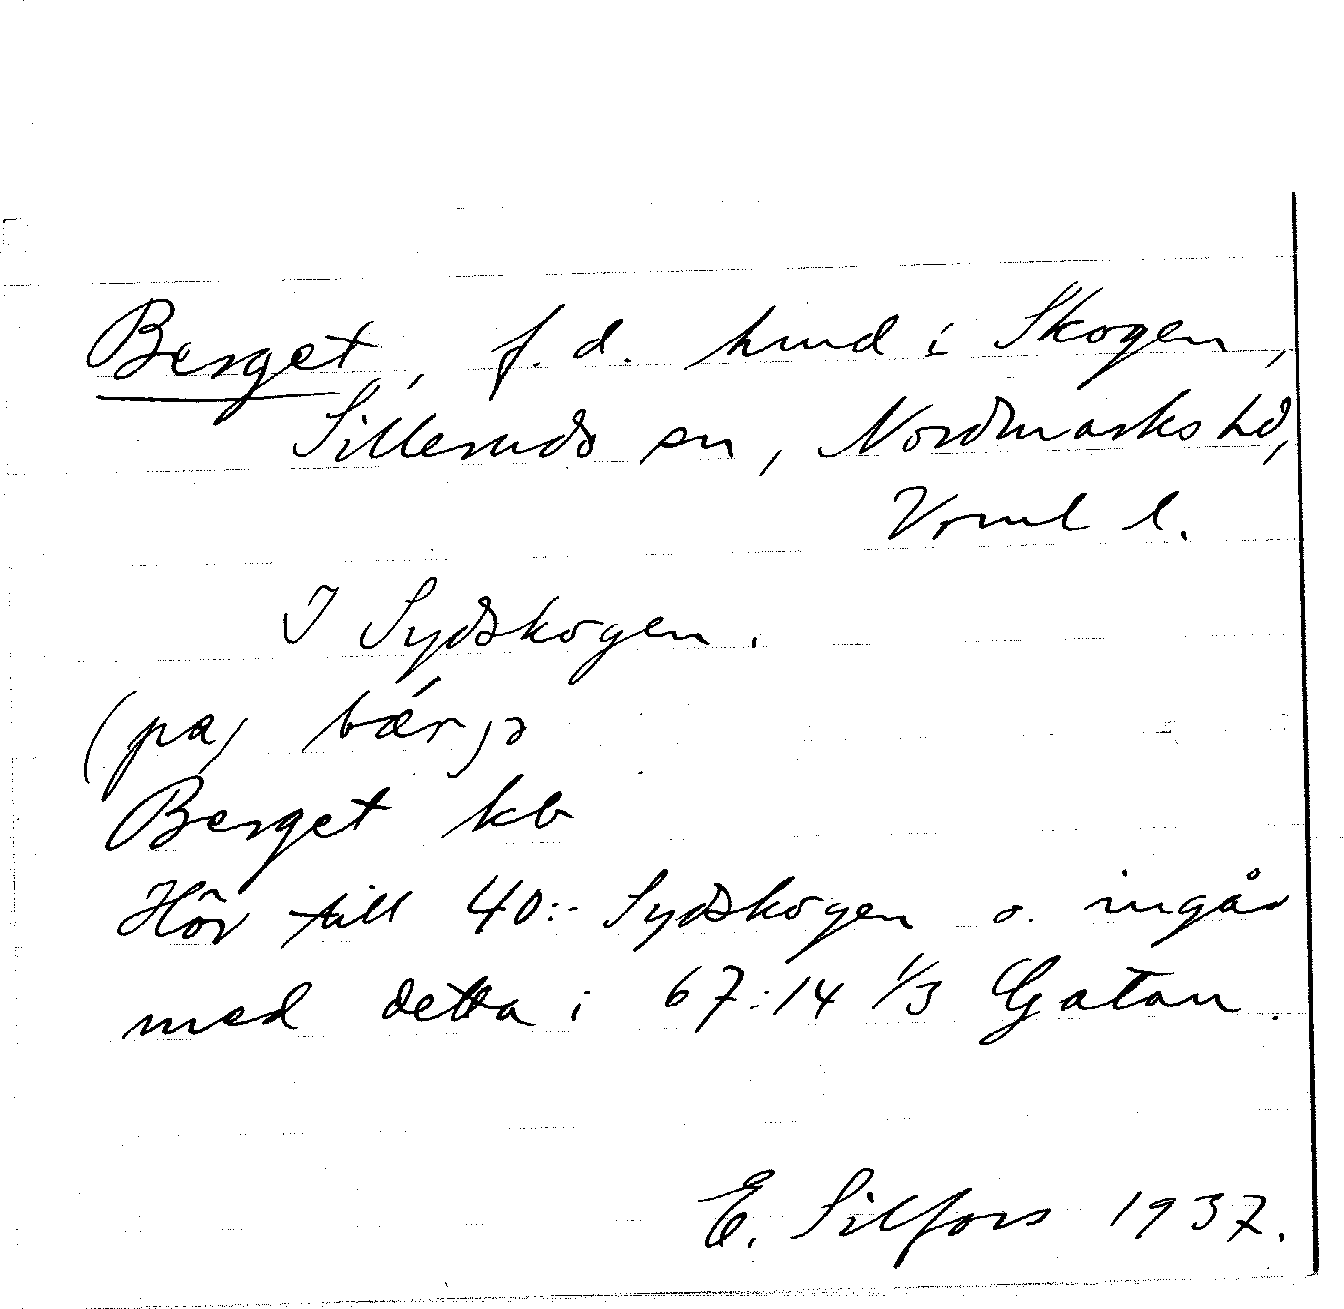 Berget, f.d. hmd i Skogen,
Silleruds sn, Nordmarks hd,
Vrml l.
I Sydskogen.
(pa) bǽrjə
Berget kb
Hör till 40:- Sydskogen o. ingår
med detta i 67:14 1/3 Gatan.
E. Silfors 1937.